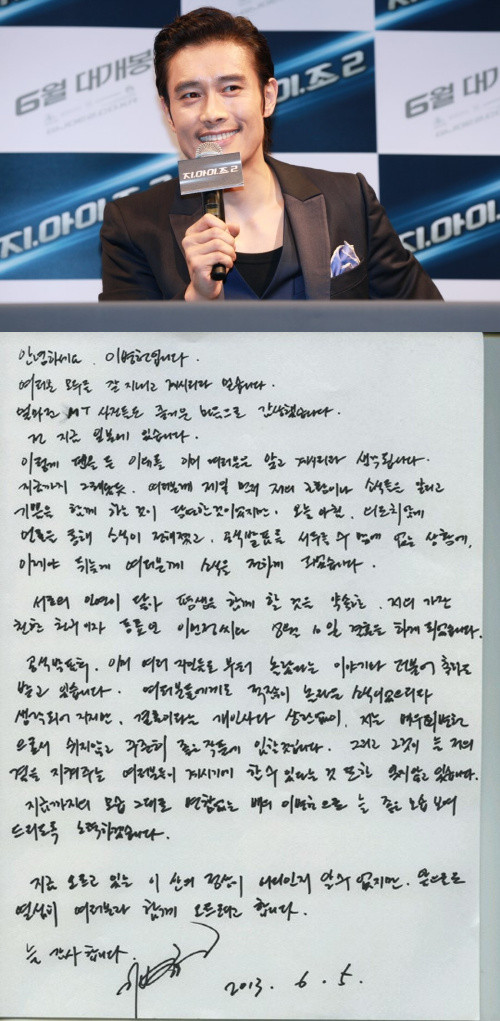 6월 대개봉
.아이.조 2
6월 대개
지.아이.조 2
지.아이.조 2
지.아이
안녕하세요. 이병헌입니다.
여러분 모두들 잘 지내고 계시리라 믿습니다.
얼마전 MT 사진들은 즐거운 마음으로 감상했습니다.
전 지금 일본에 있습니다.
이렇게 펜을 든 이유를 이미 여러분은 알고 계시리라 생각됩니다.
지금까지 그래왔듯, 여러분께 제일 먼저 저의 근황이나 소식들을 알리고
기쁨을 함께 하는 것이 당연한것이었지만, 오늘 아침, 의도치않게
언론을 통해 소식이 전해졌고, 공식발표를 서두를 수 밖에 없는 상황에,
이제야 뒤늦게 여러분께 소식을 전하게 되었습니다.
서로의 인연이 닿아 평생을 함께 할 것을 약속한, 저의 가장
친한 친구이자 동료인 이민정씨와 8월 10일 결혼을 하게 되었습니다.
공식발표후, 이미 여러 지인들로 부터 놀랐다는 이야기와 더불어 축하를
받고 있습니다. 여러분들에게도 적잖이 놀라운 소식이었으리라
생각되어 지지만, 결혼이라는 개인사와 상관없이, 저는 배우이병헌
으로서 쉬지않고 꾸준히 좋은 작품에 임할것입니다. 그리고 그것이 늘 저의
곁을 지켜주는 여러분들이 계시기에 할 수 있다는 것 또한 잊지않고 있습니다.
지금까지의 모습 그대로 변함없는 배우 이병헌으로 늘 좋은 모습 보여
드리도록 노력하겠습니다.
지금 오르고 있는 이 산의 정상이 어디인지 알수 없지만, 앞으로도
열심히 여러분과 함께 오르려고 합니다.
늘 감사합니다.
2013. 6. 5.